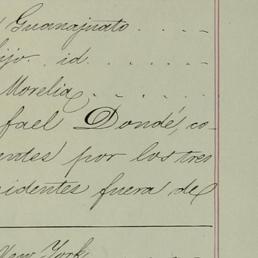 Guanajuato . . . .
ijo. id . . . . .
Morelia . . . . .
fael Dondé, co-
entes por los tres
sidentes fuera de
New York